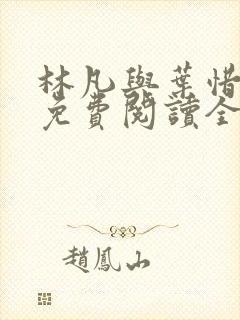 林凡與葉惜
免費閱讀全
趙鳳山